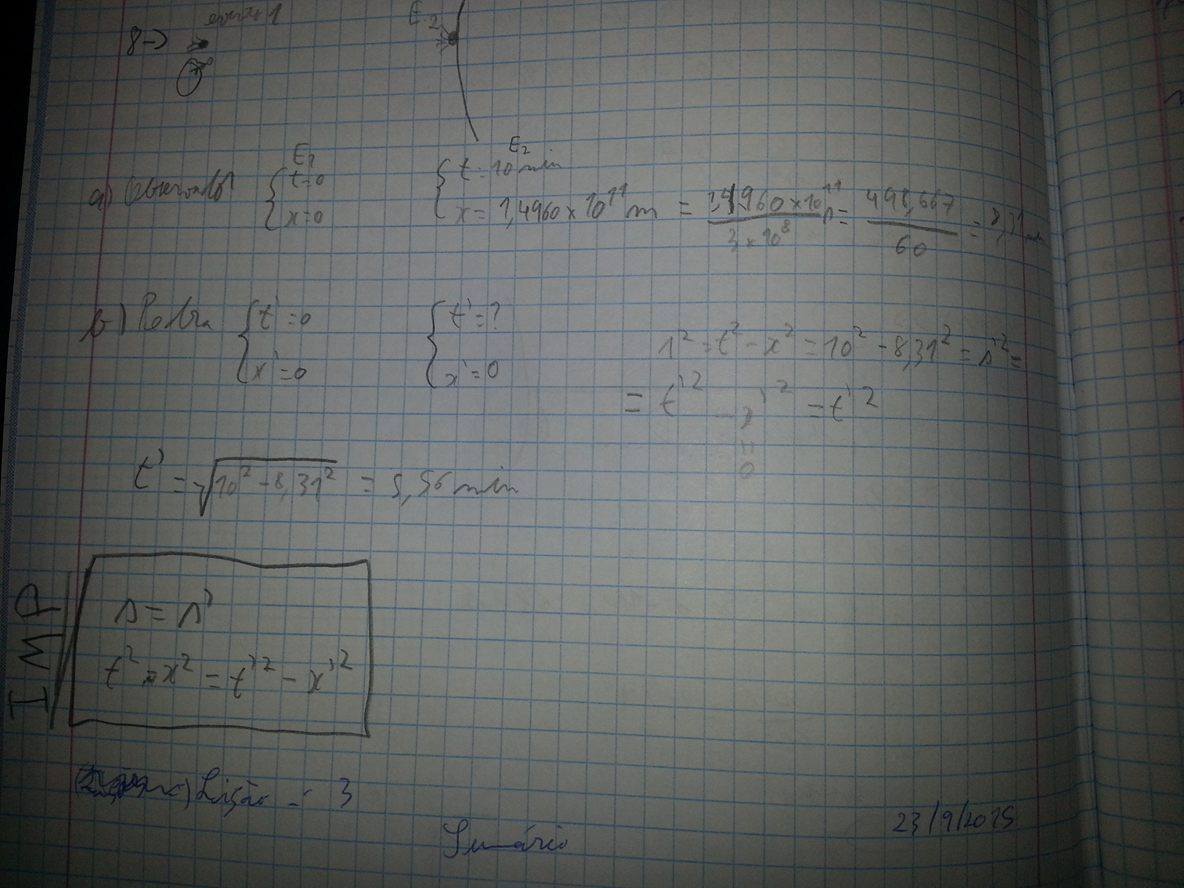 evento 1
E2
8→
E1
E2
a) Observador { t=0
{ t=10 min
x=0
x= 1,4960×10¹¹ m = 1,4960×10¹¹ / 3×10⁸ s= 498,667 / 60 = 8,31 min
b) { t'=0
{ t'=?
x'=0
x'=0
s²=t²-x²=10²-8,31²=s'²=
= t'² - x'² = t'²
=
0
t' = √10²-8,31² = 5,56 min
IMP
s=s'
t²-x²=t'²-x'²
Lição -: 3
Sumário
23/9/2015